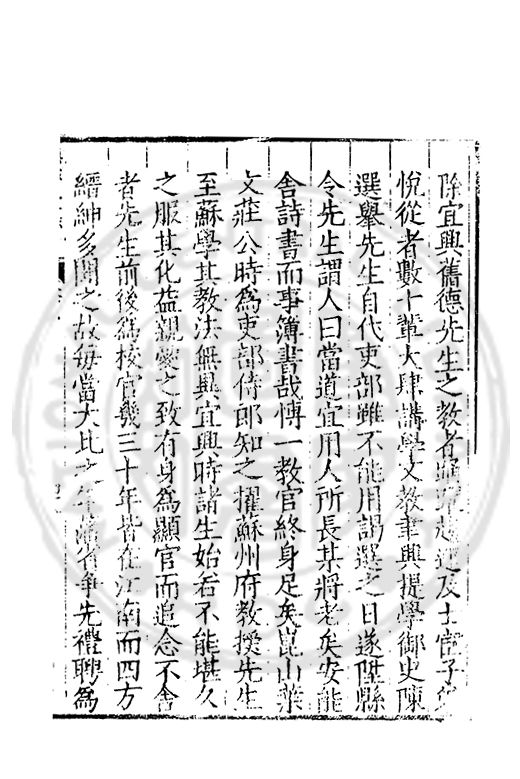 除宜興舊德先生之教者 及士官子
悅從者數十輩大肆講學文教聿興提學御史陳
選舉先生自代吏部雖不能用謁選之日遂陞縣
令先生謂人曰當道宜用人所長某將老矣安能
舍詩書而事簿書哉博一教官終身足矣崑山葉
文莊公時為吏部侍郎知之擢蘇州府教授先生
至蘇學其教法無異宜興時諸生始若不能堪久
之服其化益親愛之致有身為顯官而追念不舍
者先生前後為校官幾三十年皆在江南而四方
縉紳多聞之故每當大比之年藩省爭先禮聘為